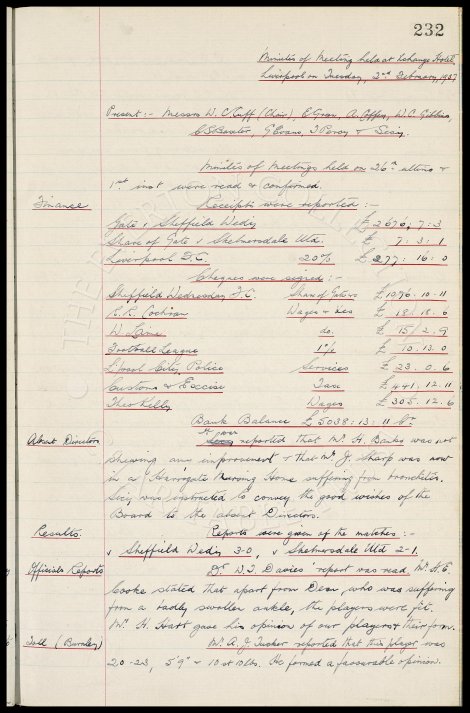 232
Minutes of Meeting held at Exchange Hotel,
Liverpool on Tuesday, 2nd February, 1937
Present:- Messrs W. C. Cuff (Chair), E. Green, A. Coffey, W. C. Gibbins,
C. S. Baxter, G. Evans, T. Percy & Secy.
Minutes of meetings held on 26th ultmo &
1st inst were read & confirmed.
Finance Receipts were reported :-
Gate v Sheffield Wedy £2676 : 7 : 3
Share of Gate v Skelmersdale Utd. £ 7 : 3 : 1
Liverpool F.C. 20% £277 : 16 : 0
Cheques were signed :-
Sheffield Wednesday F.C. Share of Gate £1096 . 10 . 11
E. R. Cochran Wages & £ 18 / 18 . 6
W. do. £ 15 / 2 . 9
Football League 1% £ 10 . 13 . 0
L'pool City Police Services £ 23 . 0 . 6
Customs & Excise Tax £441 . 12 . 11
Theo Kelly Wages £305 . 12 . 6
Bank Balance £5038 : 13 : 11 Cr.
Absent Directors reported that Mr. H. Banks was not
shewing any improvement & that Mr. J. Sharp was now
in a Harrogate Nursing Home suffering from bronchitis.
Secy was instructed to convey the good wishes of the
Board to the absent Directors.
Results. Reports were given of the matches :-
v Sheffield Wedy 3-0, v Skelmersdale Utd 2-1.
Officials Reports Dr. W. J. Davies' report was read. Mr. H. E.
Cooke stated that apart from Dean, who was suffering
from a badly swollen ankle, the players were fit.
Mr. H. Hatt gave his opinion of our players & their form.
(Burnley) Mr. A. J. Tucker reported that this player was
20-23, 5' 9" & 10 st 10 lbs. He formed a favourable opinion.